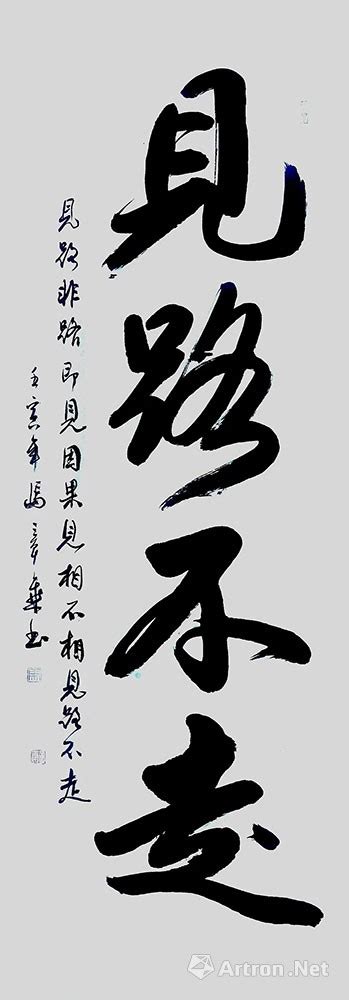 見路不走
見路非路即見因果見相不相見路不走
壬寅年馮章乘书
Artron.Net